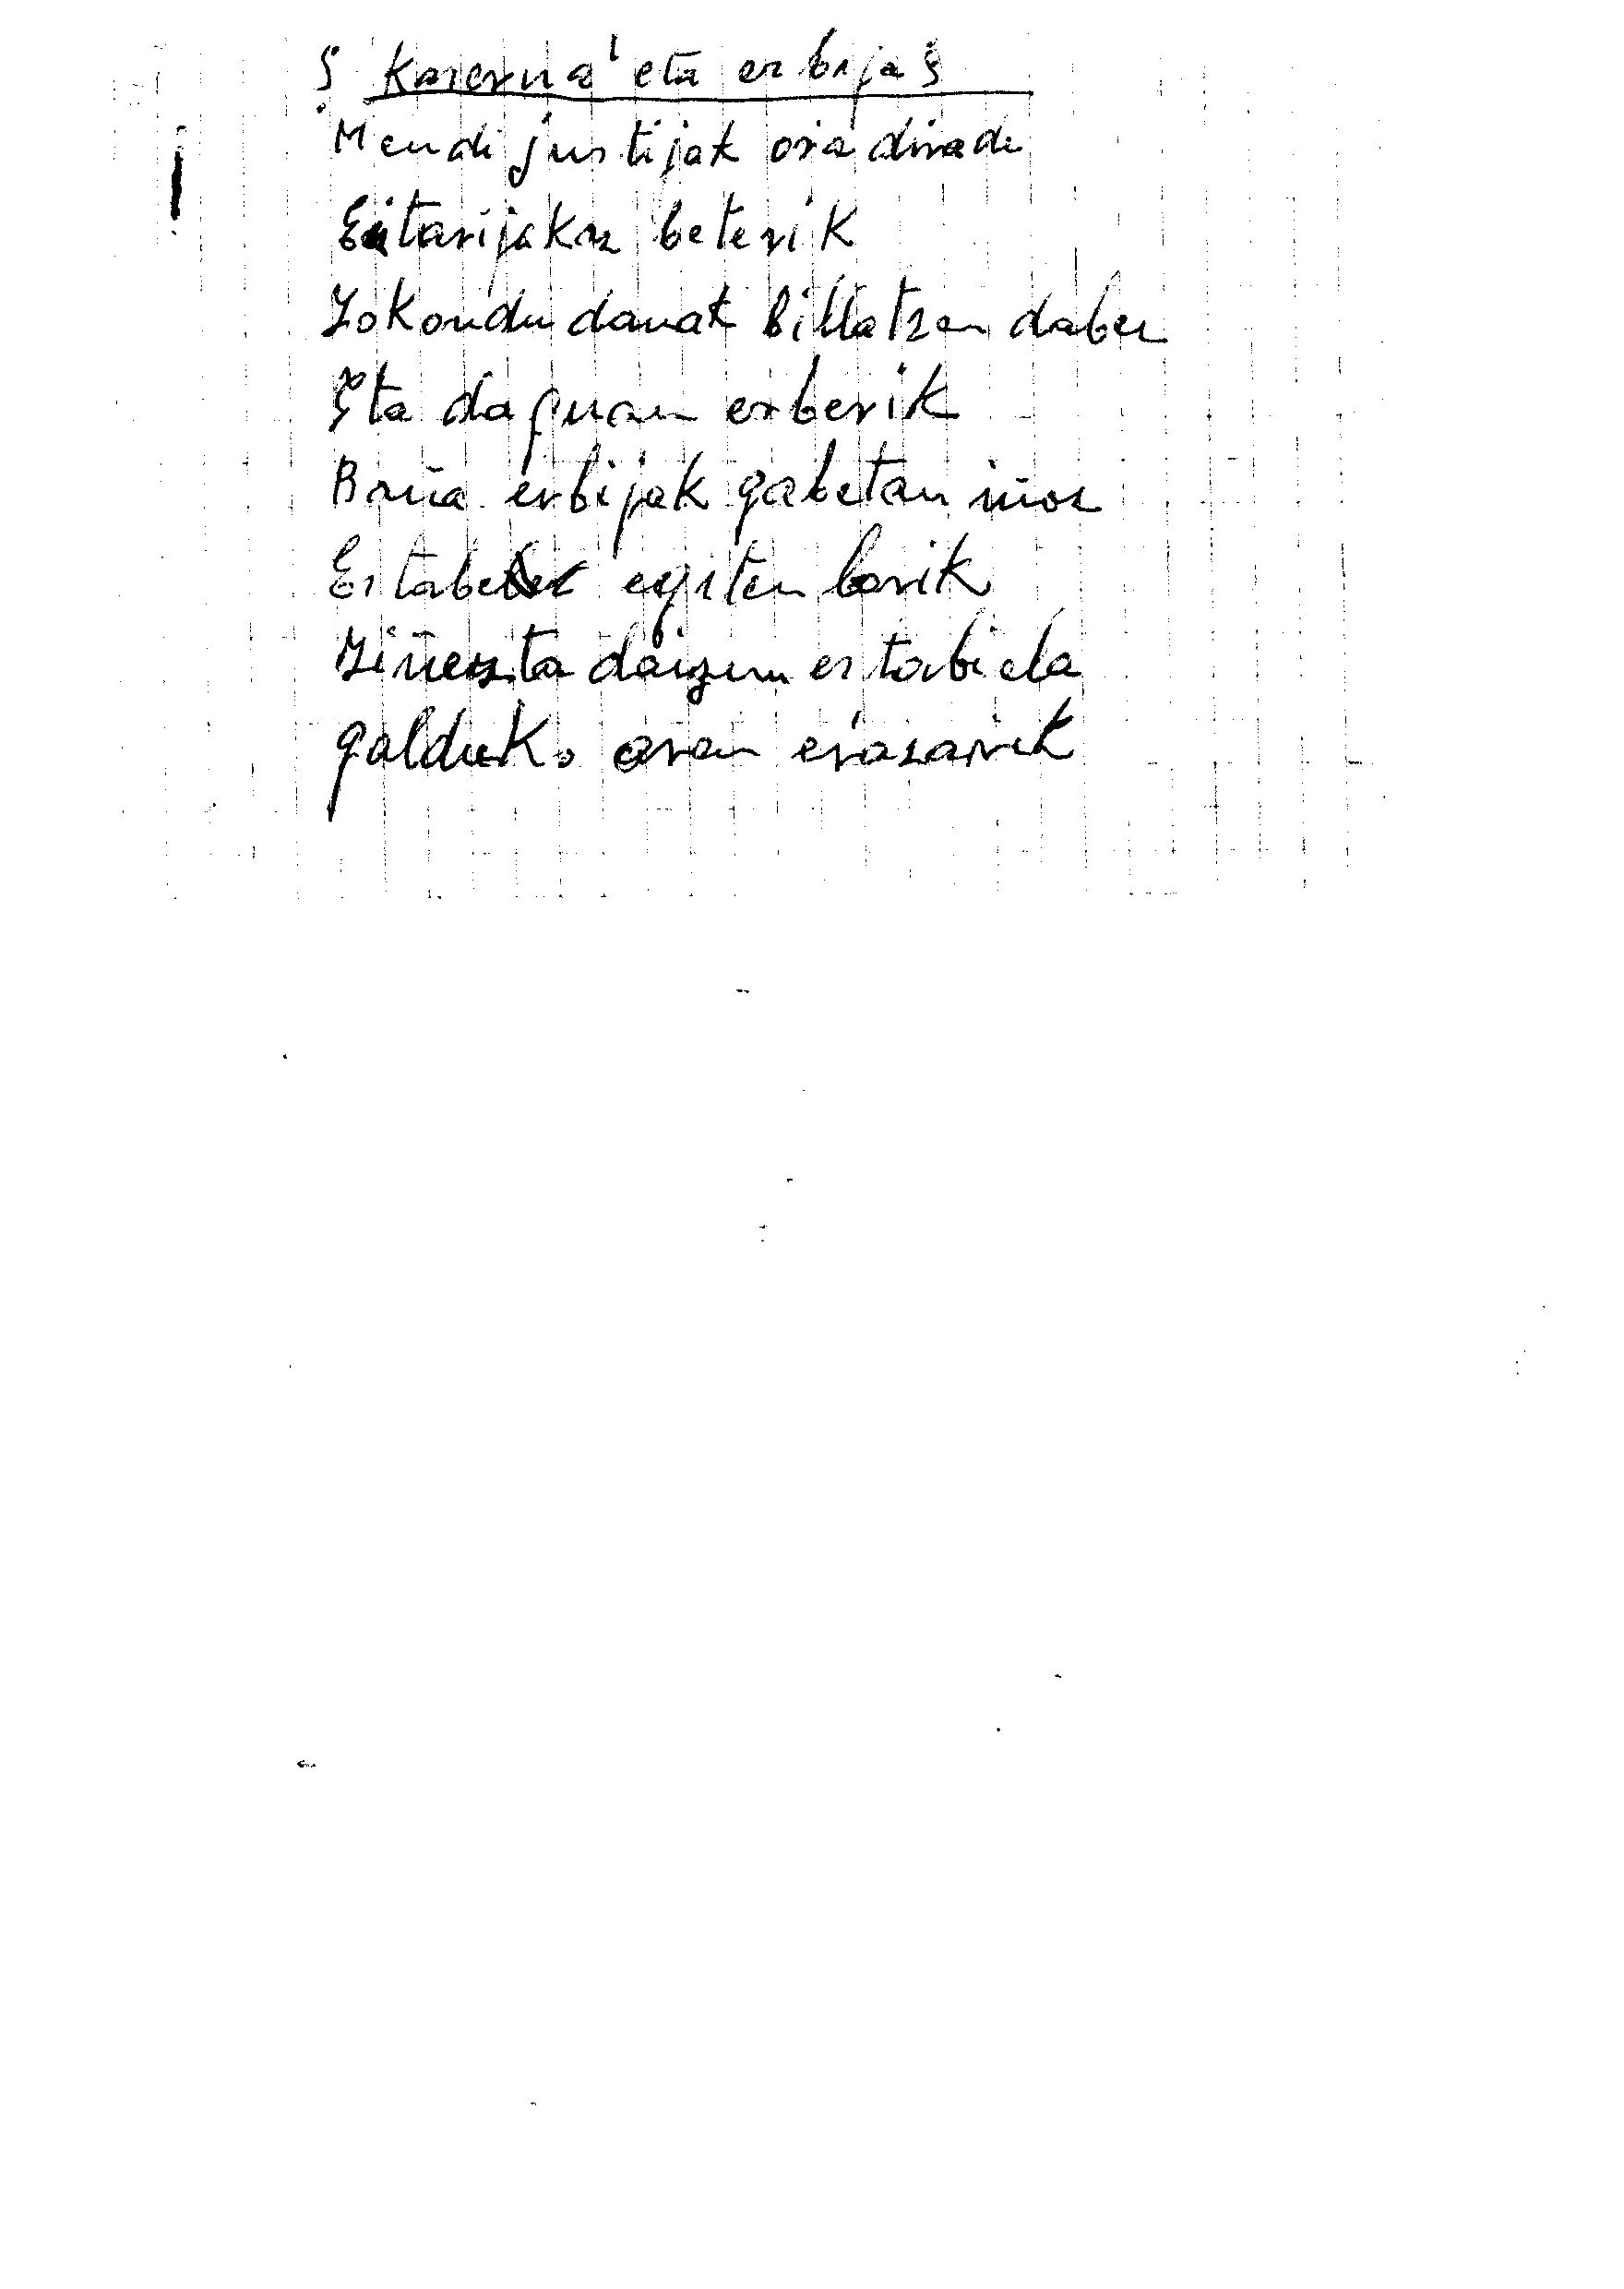 § Kaxerua eta erbija §
Mendi justijak oia dirade
Eiztarijakaz beterik
Zokondu danak billatzen daber
Eta daguan erberik
Baña erbijak gabetan iños
Eztabe egiten lorik
Ziñezta daizun eztabiela
galduko aren erazarik